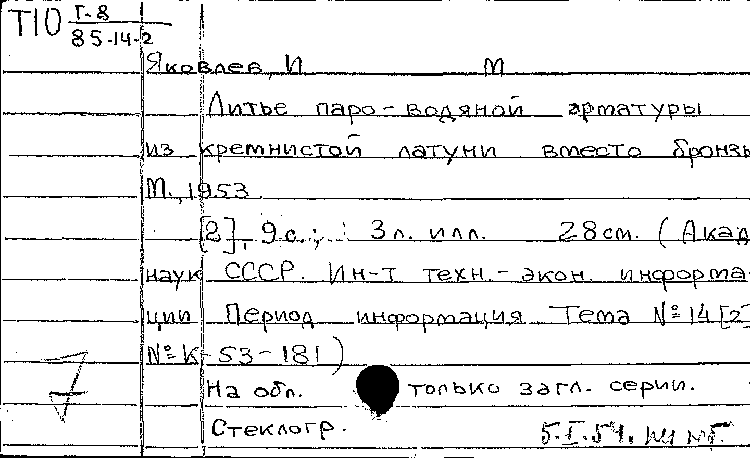 Т10 Г-8
85-14-2
Яковлев, И М
Литье паро-водяной арматуры
из кремнистой латуни вместо бронзы
М., 1953
[2], 9 с.; 3 л. илл. 28 см. (Акад
наук СССР. Ин-т техн.-экон. информа-
ции Период информация Тема № 14 [2]
№ К-53-181)
На обл. только загл. серии.
Стеклогр.
5.I.54.